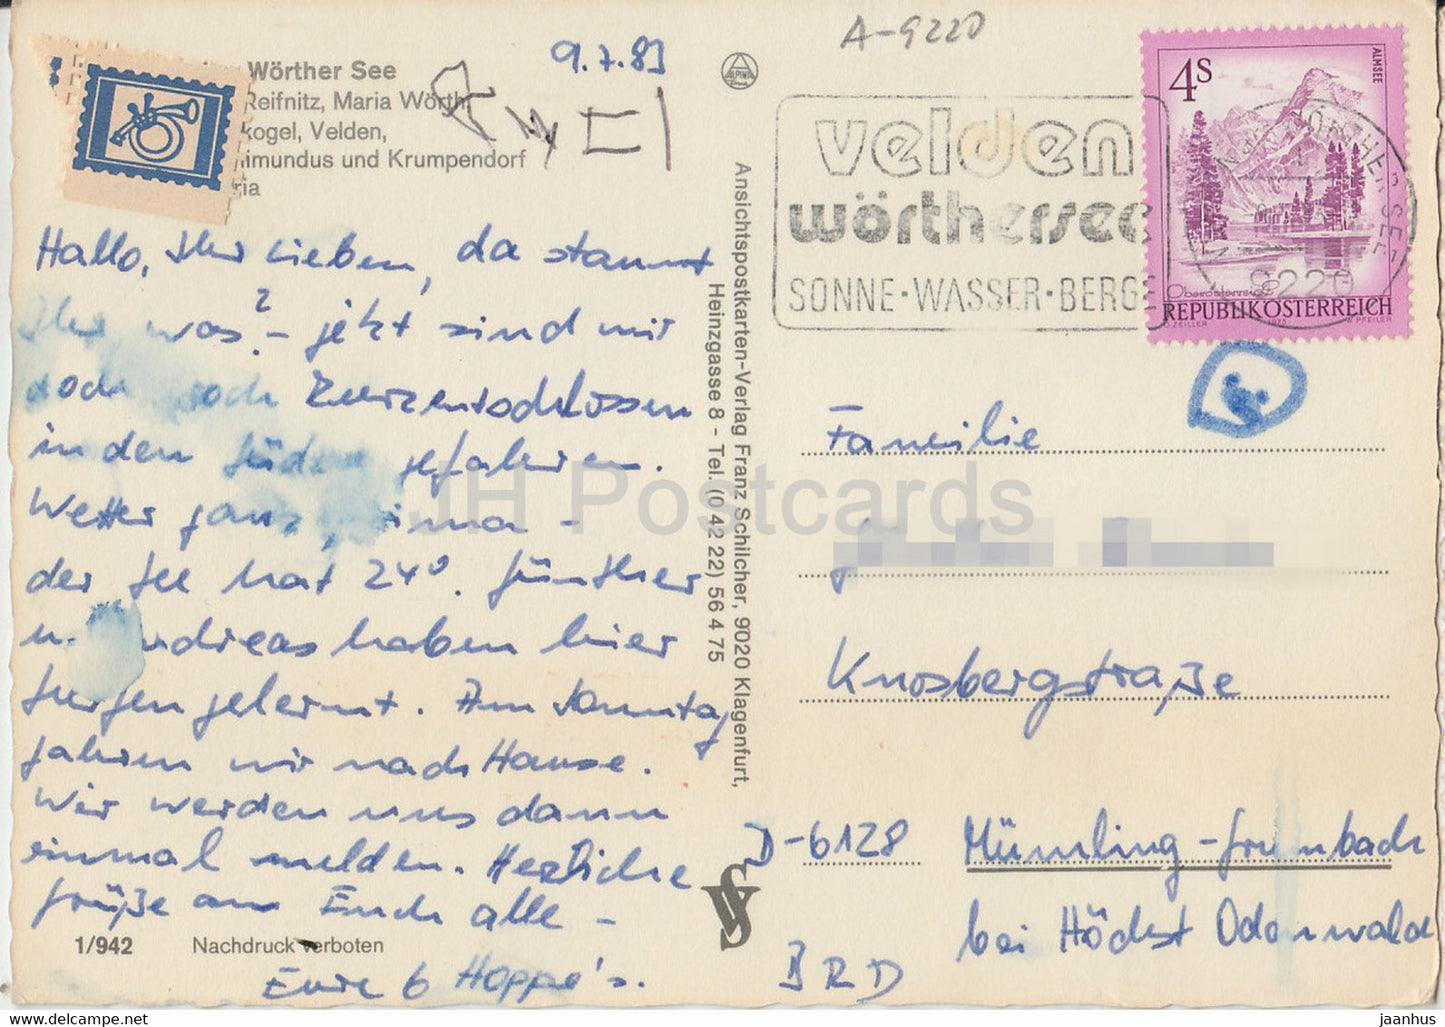 Wörther See
Reifnitz, Maria Wörth,
kogel, Velden,
imundus und Krumpendorf
ria
9.7.83
A-9220
ALPINA
Hallo, Ihr Lieben, da staunt
Ihr was? - jetzt sind wir
doch noch kurzentschlossen
in den Süden gefahren.
Wetter ganz prima -
der See hat 24°. Günther
u. Andreas haben hier
Surfen gelernt. Am Sonntag
fahren wir nach Hause.
Wir werden uns dann
einmal melden. Herzliche
Grüße an Euch alle -
Eure 6 Hoppe's.
1/942 Nachdruck verboten
Ansichtspostkarten-Verlag Franz Schilcher, 9020 Klagenfurt,
Heinzgasse 8 - Tel. (0 42 22) 56 4 75
velden
wörthersee
SONNE·WASSER·BERGE
4S
ALMSEE
Oberösterreich
REPUBLIK ÖSTERREICH
O. ZEILLER 1975 W. PFEILER
AM WÖRTHER SEE 1
9220
Familie
Knosbergstraße
D-6128 Mümling-Grumbach
bei Höchst Odenwald
BRD
VS
JH Postcards
jaanhus — https://www.jhpostcards.com